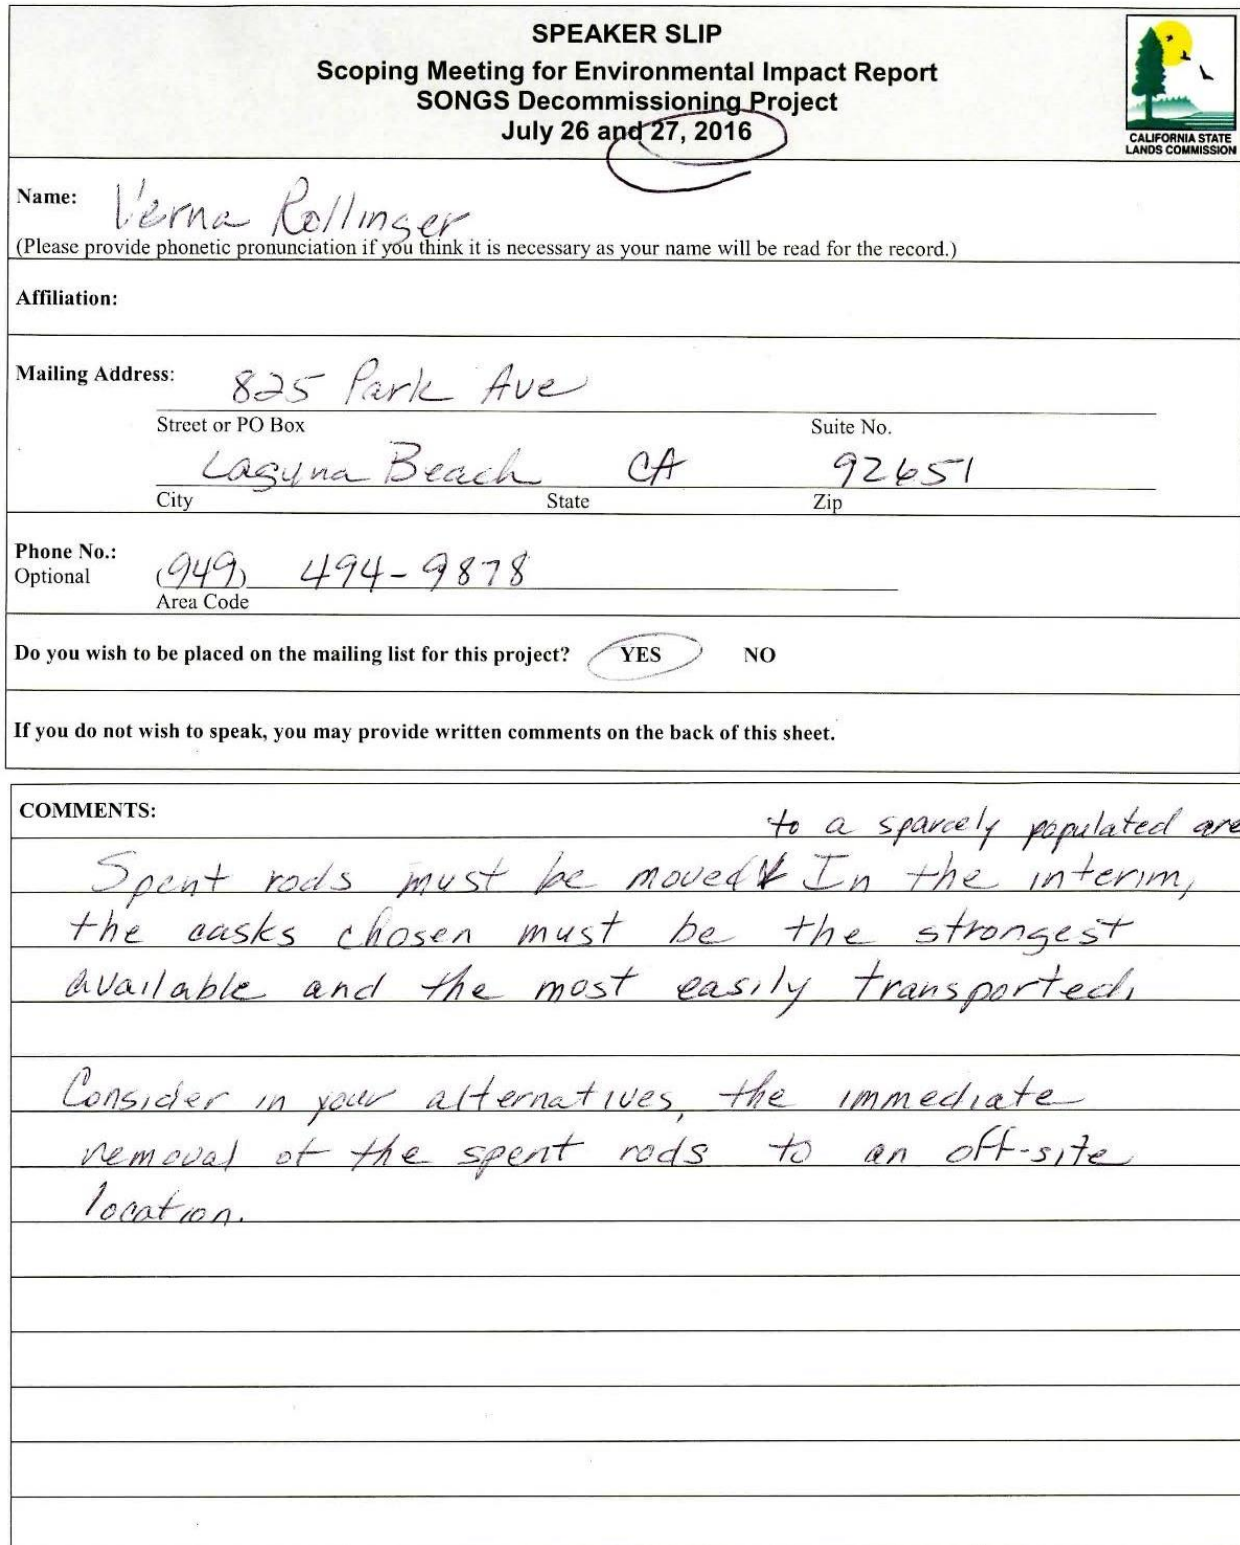 SPEAKER SLIP
Scoping Meeting for Environmental Impact Report
SONGS Decommissioning Project
July 26 and 27, 2016
CALIFORNIA STATE
LANDS COMMISSION
Name: Verna Rollinger
(Please provide phonetic pronunciation if you think it is necessary as your name will be read for the record.)
Affiliation:
Mailing Address: 825 Park Ave
Street or PO Box Suite No.
Laguna Beach CA 92651
City State Zip
Phone No.:
Optional (949) 494-9878
Area Code
Do you wish to be placed on the mailing list for this project? YES NO
If you do not wish to speak, you may provide written comments on the back of this sheet.
COMMENTS:
to a sparcely populated are
Spent rods must be moved In the interim,
the casks chosen must be the strongest
available and the most easily transported.
Consider in your alternatives, the immediate
removal of the spent rods to an off-site
location.